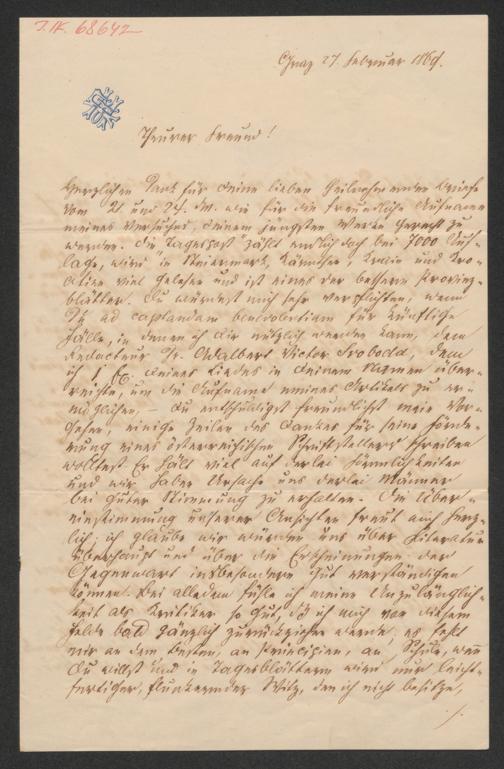 I.N. 68642
Graz 27. Februar 1869.
Theurer Freund!
Herzlichen Dank für Deine lieben theilnehmenden Briefe
vom 21 und 24. d.M. wie für die freundliche Aufnahme
meines Versuches, Deinem jüngsten Werke gerecht zu
werden. Die Tagespost zählt endlich doch bei 7000 Auf-
lage, wird in Steiermark, Kärnthen, Krain und Kro-
atien viel gelesen und ist eines der bessern Provinz-
blätter. Du würdest mich sehr verpflichten, wenn
Du ad captandam benevolentiam für künftige
Fälle, in denen ich Dir nützlich werden kann, dem
Redacteur Dr. Adalbert Victor Svoboda, dem
ich 1 Ex. Deines Liedes in Deinem Namen über-
reichte, um die Aufnahme meines Artikels zu er-
möglichen, – Du entschuldigst freundlichst mein Vor-
gehen, einige Zeilen des Dankes für seine Förde-
rung eines österreichischen Schriftstellers schreiben
wolltest. Er hält viel auf derlei Förmlichkeiten
und wir haben Ursache uns derlei Männer
bei guter Stimmung zu erhalten. Die Über-
einstimmung unserer Ansichten freut mich herz-
lich; ich glaube wir würden uns über Literatur
überhaupt und über die Erscheinungen der
Gegenwart insbesondere gut verständigen
können. Bei alledem fühle ich meine Unzulänglich-
keit als Kritiker so gut, daß ich mich von diesem
Felde bald gänzlich zurückziehen werde, es fehlt
mir an dem Besten, an Principien, an Schule, wenn
Du willst und in Tagesblättern wird nur leicht-
fertiger, flunkernder Witz, den ich nicht besitze,
./.